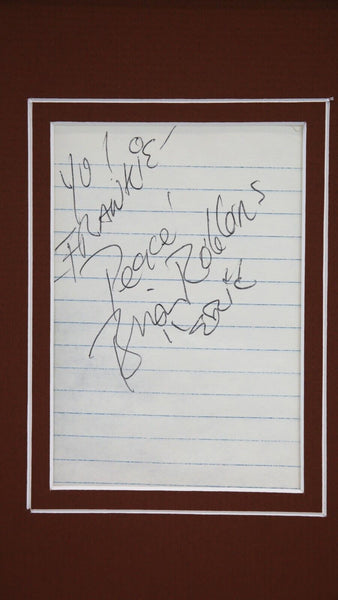 YO!
FRANKIE-
Peace!
Brian Robbins
"ERIC"